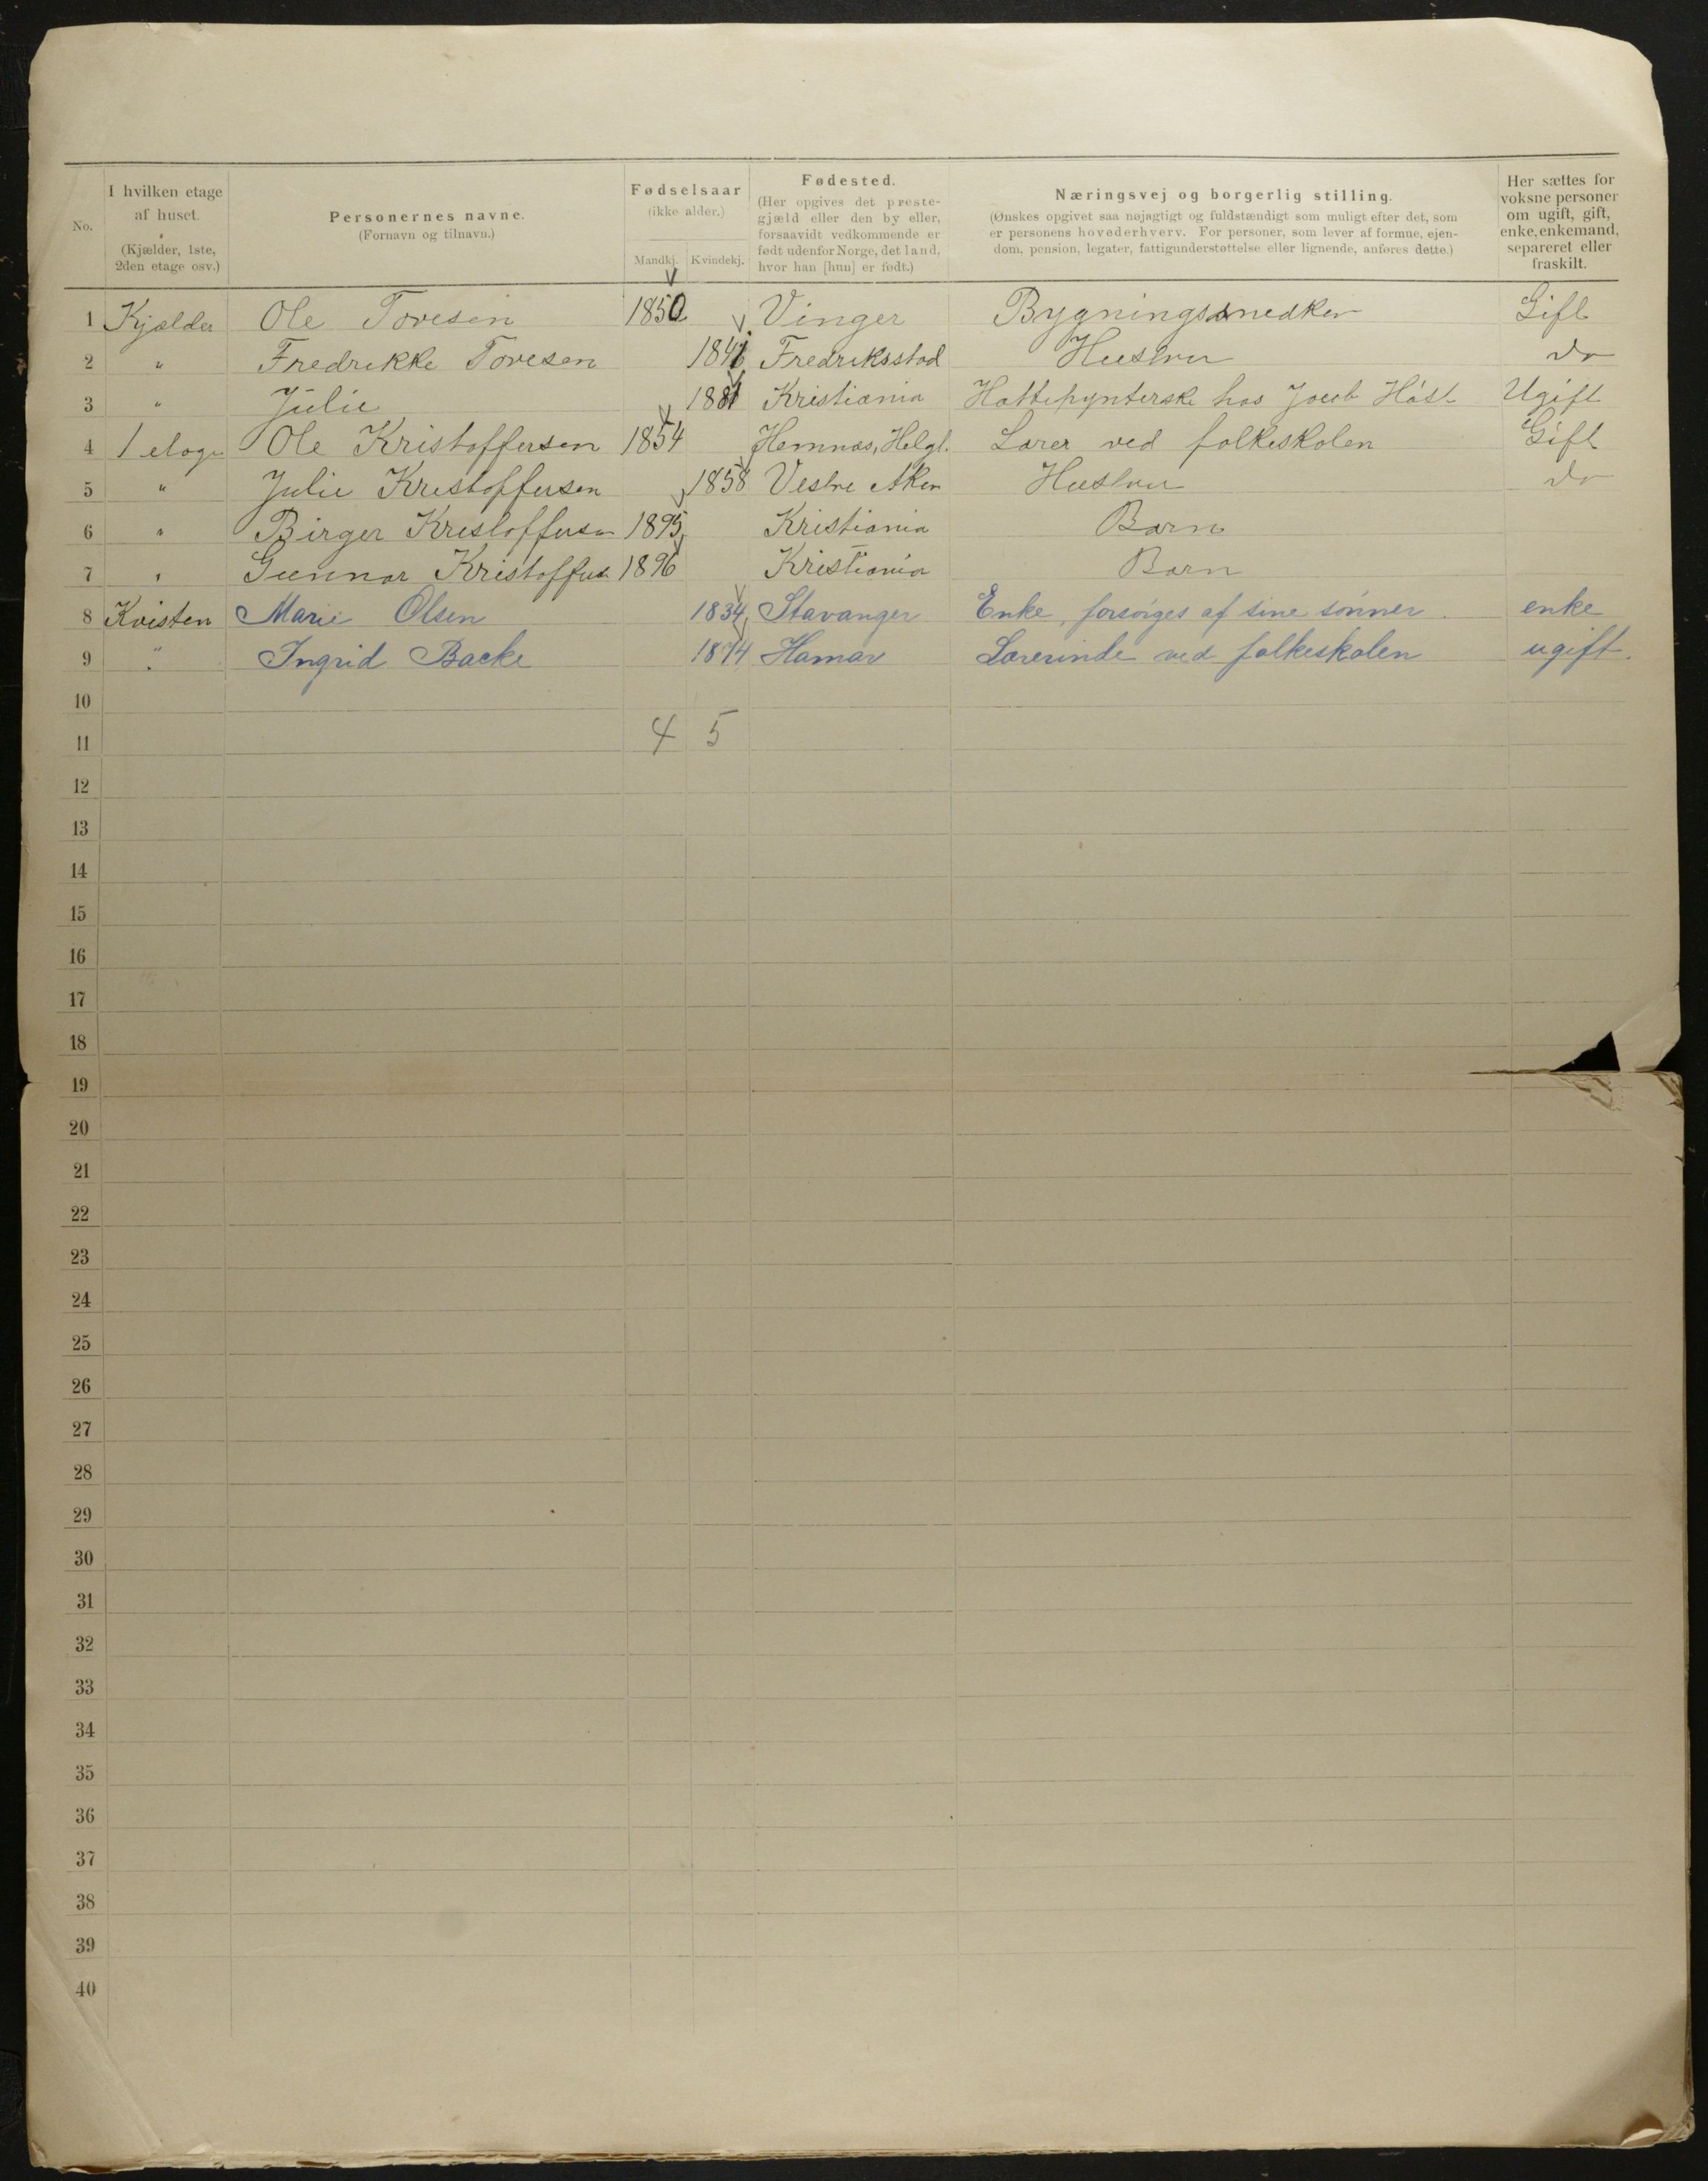 No.
I hvilken etage af huset. (Kjælder, 1ste, 2den etage osv.)
Personernes navne. (Fornavn og tilnavn.)
Fødselsaar (ikke alder.)
Mandkj. Kvindekj.
Fødested. (Her opgives det prestegjæld eller den by eller, forsaavidt vedkommende er født udenfor Norge, det land, hvor han [hun] er født.)
Næringsvej og borgerlig stilling. (Ønskes opgivet saa nøjagtigt og fuldstændigt som muligt efter det, som er personens hovederhverv. For personer, som lever af formue, ejendom, pension, legater, fattigunderstøttelse eller lignende, anføres dette.)
Her sættes for voksne personer om ugift, gift, enke, enkemand, separeret eller fraskilt.
1 Kjælder Ole Tovesen 1850 Vinger Bygningssnedker Gift
2 " Fredrikke Tovesen Fredriksstad Hustru do
3 " Julie 1881 Kristiania Hattepynterske hos Jacob Høst Ugift
4 1 etage Ole Kristoffersen 1854 Hemnæs, Helgl. Lærer ved folkeskolen Gift
5 " Julie Kristoffersen 1858 Vestre Aker Hustru do
6 " Birger Kristoffersen 1895 Kristiania Barn
7 " Gunnar Kristoffersen 1896 Kristiania Barn
8 Kvisten Marie Olsen 1834 Stavanger Enke, forsørges af sine sønner. enke
9 " Ingrid Backe 1874 Hamar Lærerinde ved folkeskolen ugift.
10
11 4 5
12
13
14
15
16
17
18
19
20
21
22
23
24
25
26
27
28
29
30
31
32
33
34
35
36
37
38
39
40